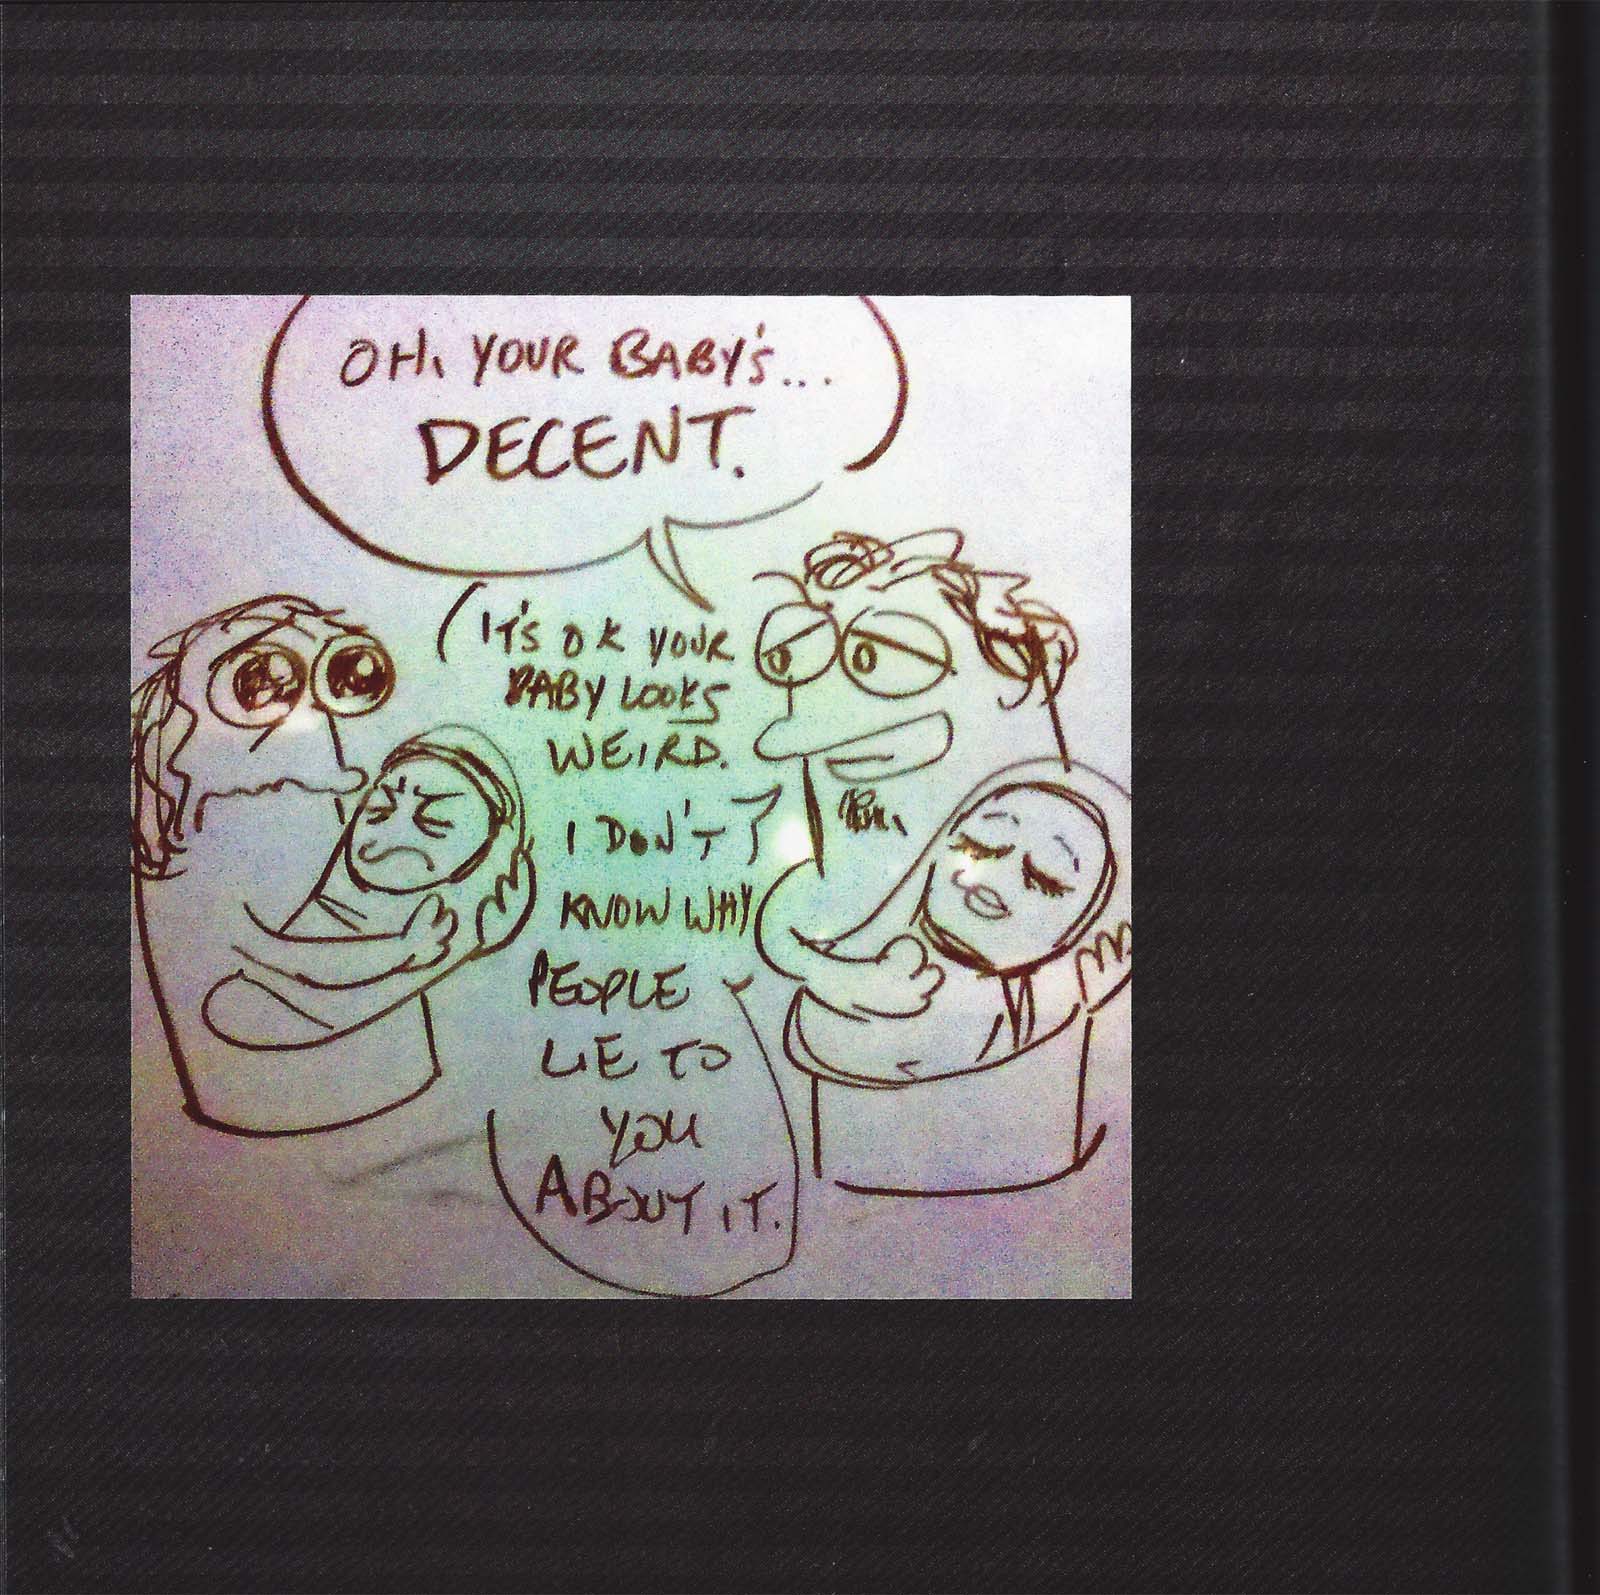 OH, YOUR BABY'S...
DECENT.
IT'S OK YOUR
BABY LOOKS
WEIRD.
I DON'T
KNOW WHY
PEOPLE
LIE TO
YOU
ABOUT IT.